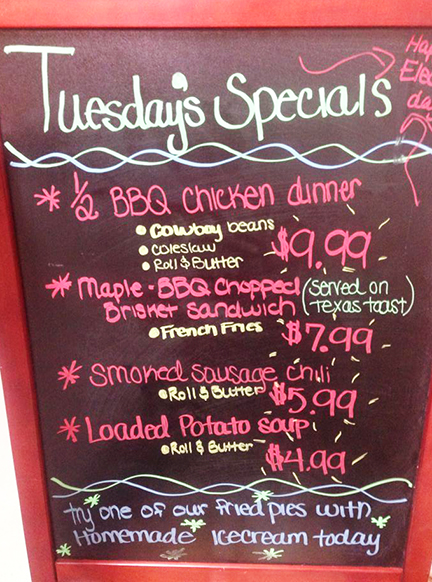 Tuesday's Specials
Ele
da
* 1/2 BBQ Chicken dinner
• Cowboy beans
• Coleslaw
• Roll & Butter
$9.99
* Maple-BBQ Chopped (served on
Brisket Sandwich Texas toast)
• French Fries
$7.99
* Smoked Sausage Chili
• Roll & Butter
$5.99
* Loaded Potato soup
• Roll & Butter
$4.99
try one of our fried pies with
Homemade Icecream today